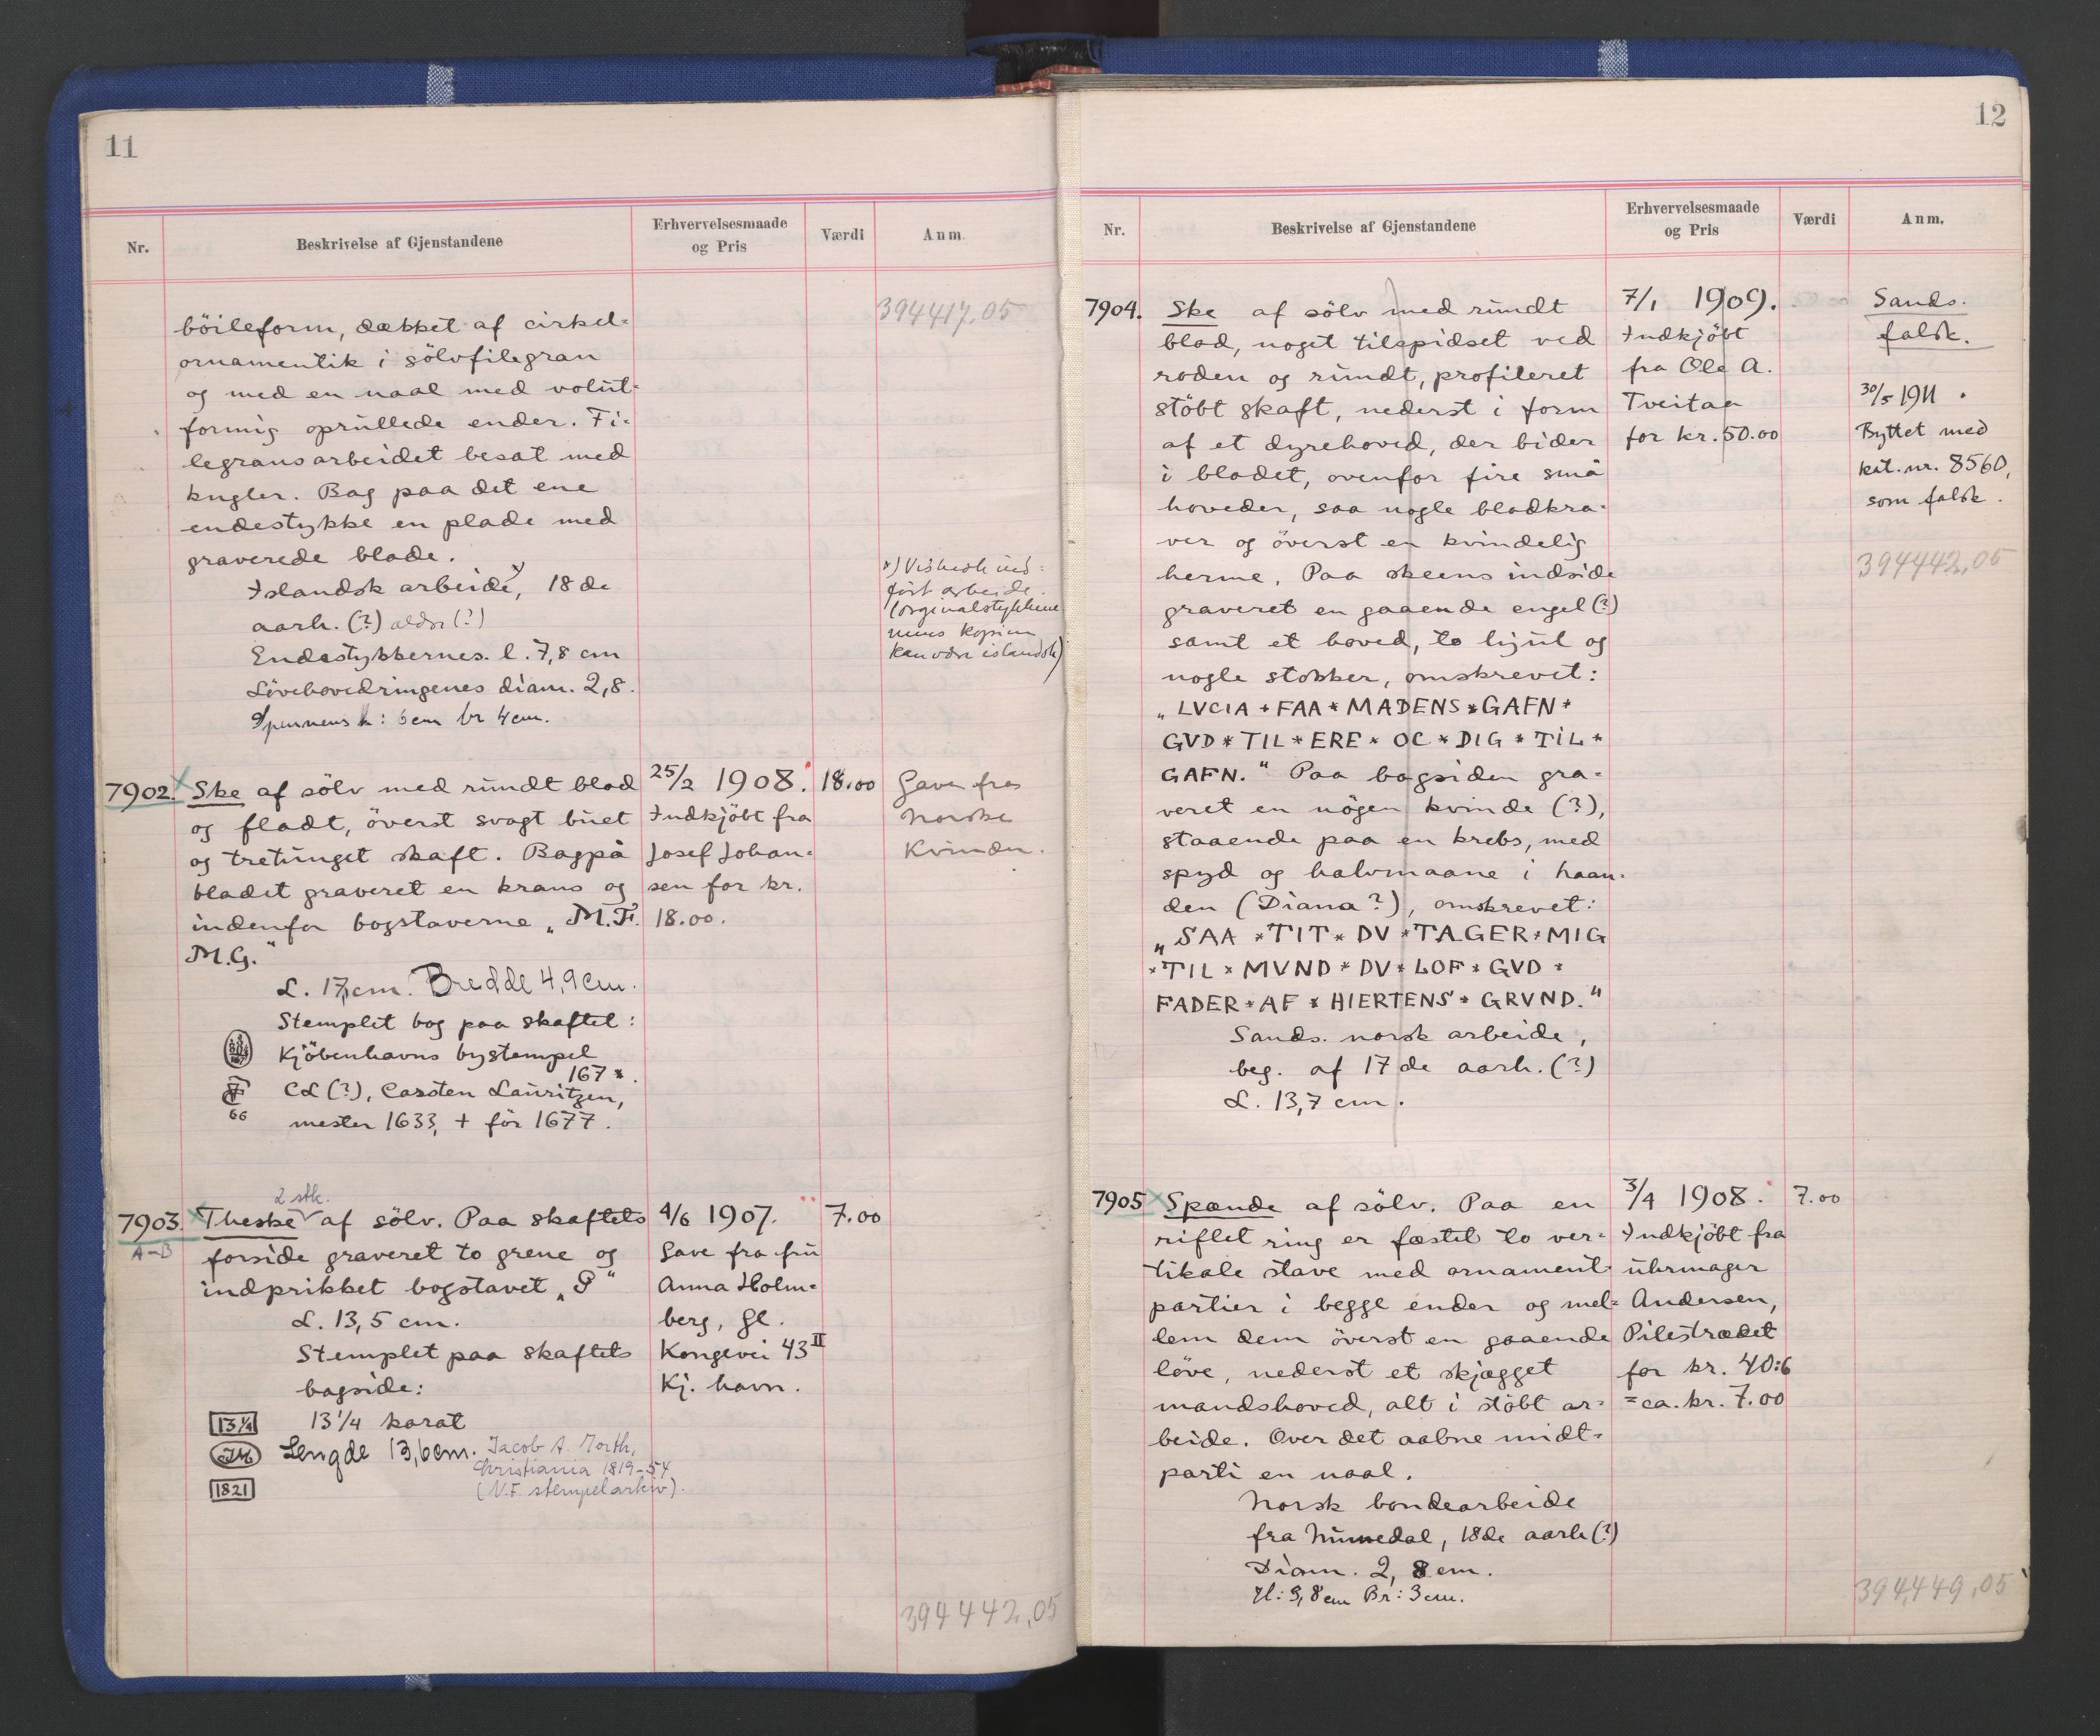 11
Nr.
Beskrivelse af Gjenstandene
Erhvervelsesmaade
og Pris
Værdi
Anm.
394417.05
böileform, dækket af cirkel-
ornamentik i sölvfilegran
og med en naal med volut-
formig oprullede ender. Fi-
legransarbeidet besat med
kugler. Bag paa det ene
endestykke en plade med
graverede blade.
Islandsk arbeide, 18de
aarh. (?) ældre (?)
Endestykkernes. l. 7,8 cm
Lövehovedringenes diam. 2,8.
Spennens h: 6 cm br 4 cm.
*) ind-
fört arbeide.
(orginalstykkene
mens kopien
kan være islandsk)
7902.
Ske af sölv med rundt blad
og fladt, överst svagt buet
og tretunget skaft. Bagpå
bladet graveret en krans og
indenfor bogstaverne „M.F.
M.G.“
L. 17, cm. Bredde 4,9 cm.
Stemplet bag paa skaftet:
Kjöbenhavns bystempel
167*.
CL (?), Carsten Lauritzen,
66
mester 1633, + för 1677.
25/2 1908.
Indkjöbt fra
Josef Johan-
sen for kr.
18.00.
18.00
Gave fra
Norske
Kvinder.
7903.
A-B
2 stk.
Theske af sölv. Paa skaftets
forside graveret to grene og
indprikket bogstavet „P“
L. 13,5 cm.
Stemplet paa skaftets
bagside:
13¼ 13¼ karat
JM Lengde 13,6cm. Jacob A. Morth,
Christiania 1819-54
(N.F. stempelarkiv).
1821
4/6 1907.
Gave fra fru
Anna Holm-
berg, Gl.
Kongevei 43 II
Kj. havn.
7.00
394442,05
12
Nr.
Beskrivelse af Gjenstandene
Erhvervelsesmaade
og Pris
Værdi
Anm.
7904.
Ske af sölv med rundt
blad, noget tilspidset ved
roden og rundt, profileret
stöbt skaft, nederst i form
af et dyrehoved, der bider
i bladet, ovenfor fire små
hoveder, saa nogle bladkra-
ver og överst en kvindelig
herme. Paa skeens indside
graveret en gaaende engel (?)
samt et hoved, to hjul og
nogle stokker, omskrevet:
„LVCIA * FAA * MADENS * GAFN *
GVD * TIL * ERE * OC * DIG * TIL *
GAFN.“ Paa bagsiden gra-
veret en nögen kvinde (?),
staaende paa en krebs, med
spyd og halvmaane i haan-
den (Diana?), omskrevet:
„SAA * TIT * DV * TAGER * MIG
* TIL * MVND * DV * LOF * GVD *
FADER * AF * HIERTENS * GRVND.“
Sands. norsk arbeide,
beg. af 17de aarh. (?)
L. 13,7 cm.
7/1 1909.
Indkjöbt
fra Ole A.
Tveitan
for kr. 50.00
Sands.
falsk.
30/5 1911.
Byttet med
kat. nr. 8560,
som falsk.
394442,05
7905
Spænde af sölv. Paa en
riflet ring er fæstet to ver-
tikale stave med ornament-
partier i begge ender og mel-
lem dem överst en gaaende
löve, nederst et skjægget
mandshoved, alt i stöbt ar-
beide. Over det aabne midt-
parti en naal.
Norsk bondearbeide
fra Numedal, 18de aarh (?)
Diam. 2,8 cm.
H: 3,8 cm Br: 3 cm.
3/4 1908.
Indkjöbt fra
uhrmager
Andersen,
Pilestrædet
for kr. 40:6
= ca. kr. 7.00
7.00
394449,05